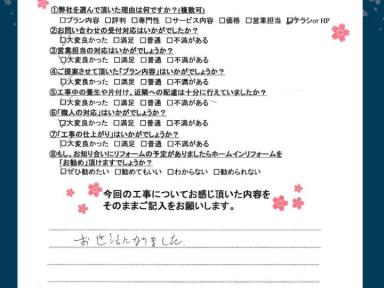 ①弊社を選んで頂いた理由は何ですか?(複数可)
□プラン内容 □評判 □専門性 □サービス内容 □価格 □営業担当 ☑チラシor HP
②お問い合わせの受付対応はいかがでしたか?
☑大変良かった □満足 □普通 □不満がある
③営業担当の対応はいかがでしょうか?
☑大変良かった □満足 □普通 □不満がある
④ご提案させて頂いた「プラン内容」はいかがでしょうか?
☑大変良かった □満足 □普通 □不満がある
⑤工事中の養生や片付け、近隣への配慮は十分に行えていましたか?
☑大変良かった □満足 □普通 □不満がある
⑥「職人の対応」はいかがでしょうか?
☑大変良かった □満足 □普通 □不満がある
⑦「工事の仕上がり」はいかがでしょうか?
☑大変良かった □満足 □普通 □不満がある
⑧もし、お知り合いにリフォームの予定がありましたらホームインリフォームを
「お勧め」頂けますでしょうか?
☑ぜひ勧めたい □勧めてもいい □わからない □勧められない
今回の工事についてお感じ頂いた内容を
そのままご記入をお願いします。
お世話になりました